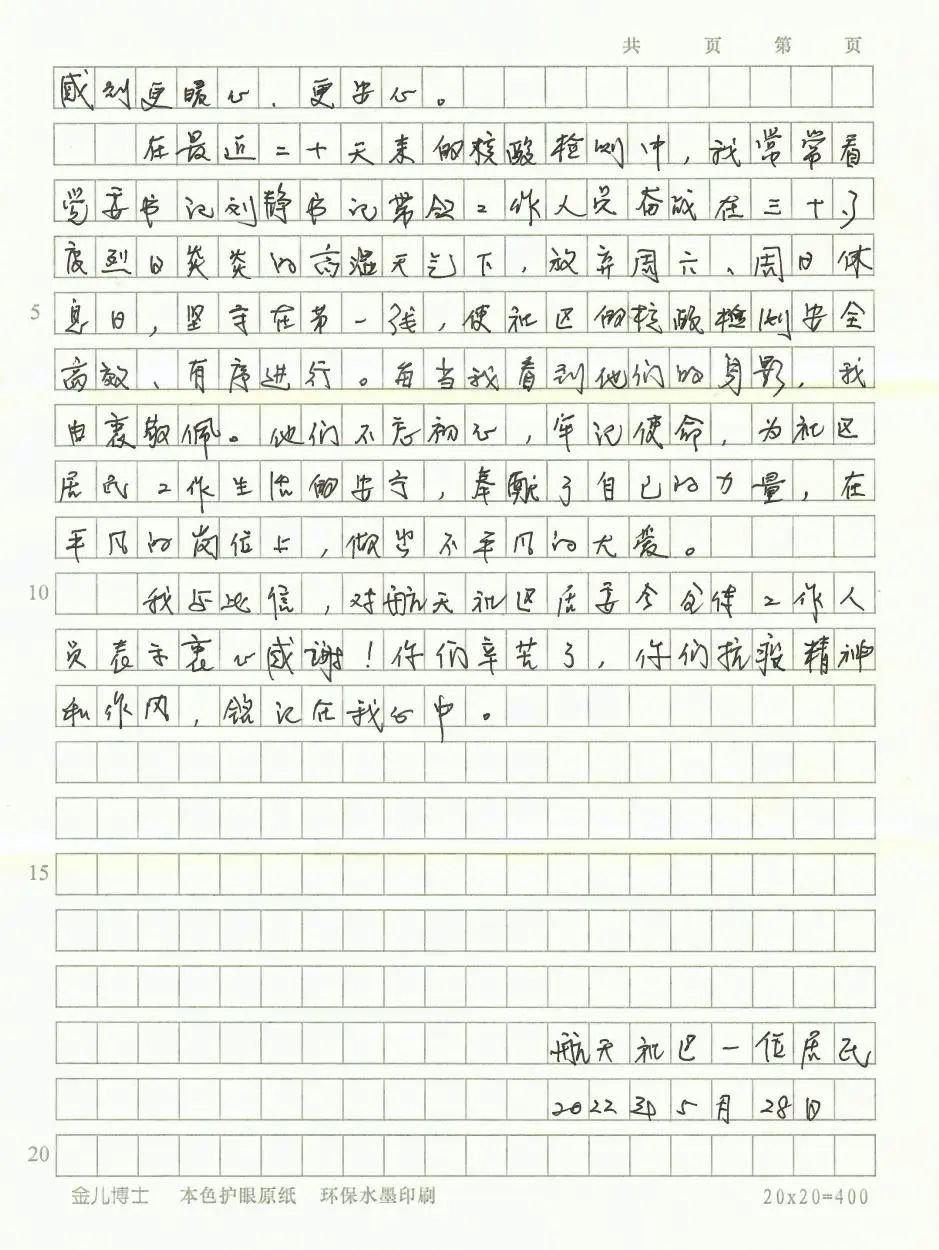 共 页 第 页
感到更暖心、更安心。
在最近二十天来的核酸检测中,我常常看
党委书记刘静书记带领工作人员奋战在三十多
度烈日炎炎的高温天气下,放弃周六、周日休
5 息日,坚守在第一线,使社区的核酸检测安全
高效、有序进行。每当我看到他们的身影,我
由衷敬佩。他们不忘初心,牢记使命,为社区
居民工作生活的安宁,奉献了自己的力量,在
平凡的岗位上,做出不平凡的大爱。
10 我与此信,对航天社区居委会全体工作人
员表示衷心感谢!你们辛苦了,你们抗疫精神
和作风,铭记在我心中。
15
航天社区一位居民
2022年5月28日
20
金儿博士 本色护眼原纸 环保水墨印刷 20x20=400